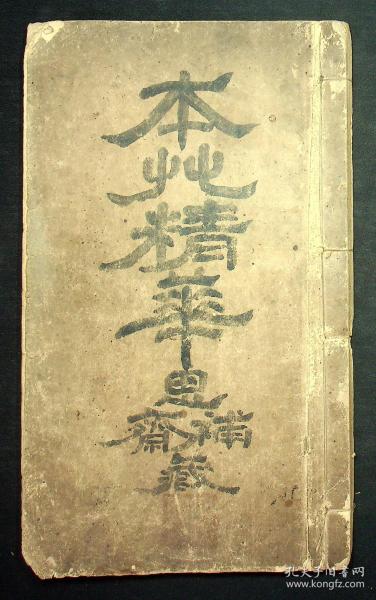 本艸精華
思補齋藏
孔夫子旧书网
www.kongfz.com